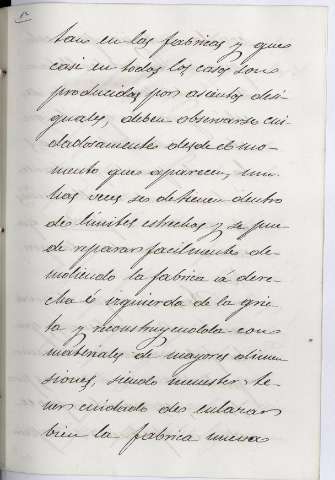 tan en las fabricas y que
casi en todos los casos son
producidas por asientos desi-
guales, deben observarse cui-
dadosamente desde el mo-
mento que aparecen, mu-
chas veces se detienen dentro
de limites estrechos y se pue-
de reparar facilmente de-
moliendo la fabrica á dere-
cha é izquierda de la grie-
ta y reconstruyendola con
materiales de mayores dimen-
siones, siendo menester te-
ner cuidado de enlazar
bien la fabrica nueva